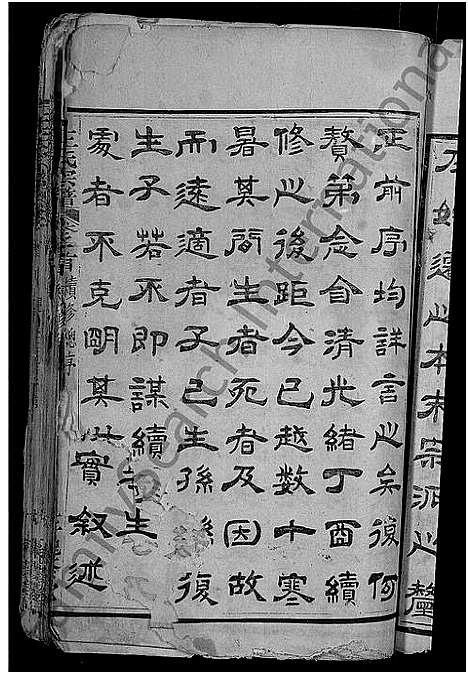 左姓遷㞢本末宗派㞢釐
正前序均詳言㞢矣復何
贅第念自清光緒丁酉續
修㞢後距今已越數十寒
暑其間生者死者及因故
而遠適者子已生孫孫復
生子若不即謀續 生
處者不克明其世實叙述
氏宗譜 卷之首 續修總序
MySearch International